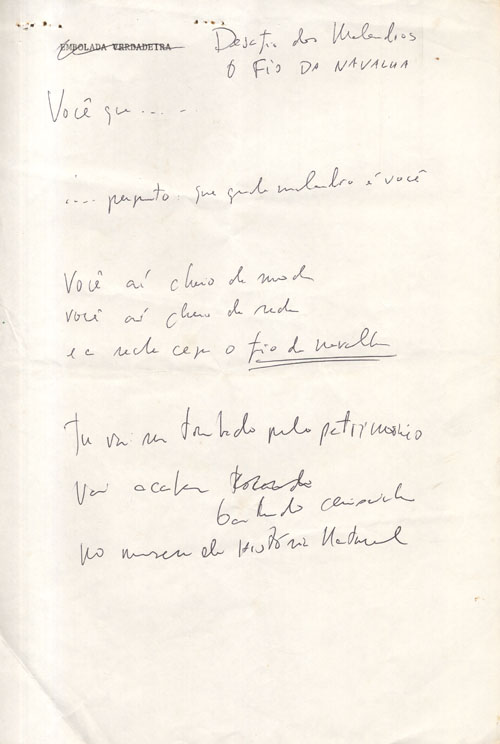 EMBOLADA VERDADEIRA
Desafio dos Malandros
O FIO DA NAVALHA
Você que . . . . .
.... pergunto: que grande malandro é você
Você aí cheio de moda
você aí cheio de
e a o fio da navalha
Tu vai ser tombado pelo patrimônio
Vai acabar
no museu de História Natural